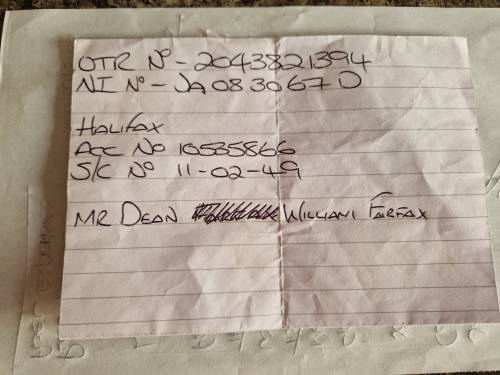 OTR NO - 2043821394
NI NO - JA083067D
HALIFAX
ACC NO 10535866
S/C NO 11-02-49
MR DEAN WILLIAM FAIRFAX